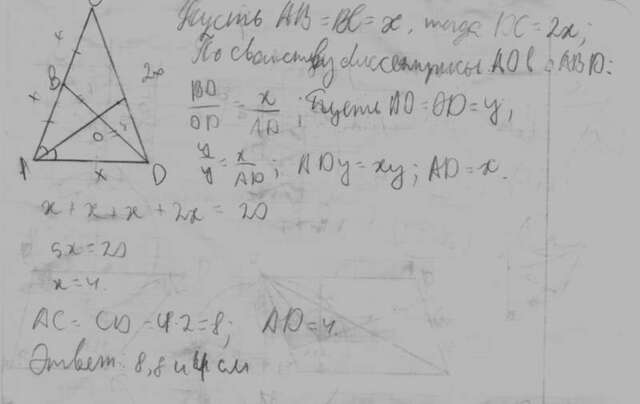 Пусть AB = BC = x, тогда DC = 2x;
По свойству биссектрисы AO в ABD:
BO/OD = x/AD; Пусть BO = OD = y,
y/y = x/AD; ADy = xy; AD = x.
C
x
B
2x
x
O
A
x
D
x + x + x + 2x = 20
5x = 20
x = 4.
AC = CD = 4·2 = 8; AD = 4.
Ответ: 8, 8 и 4 см